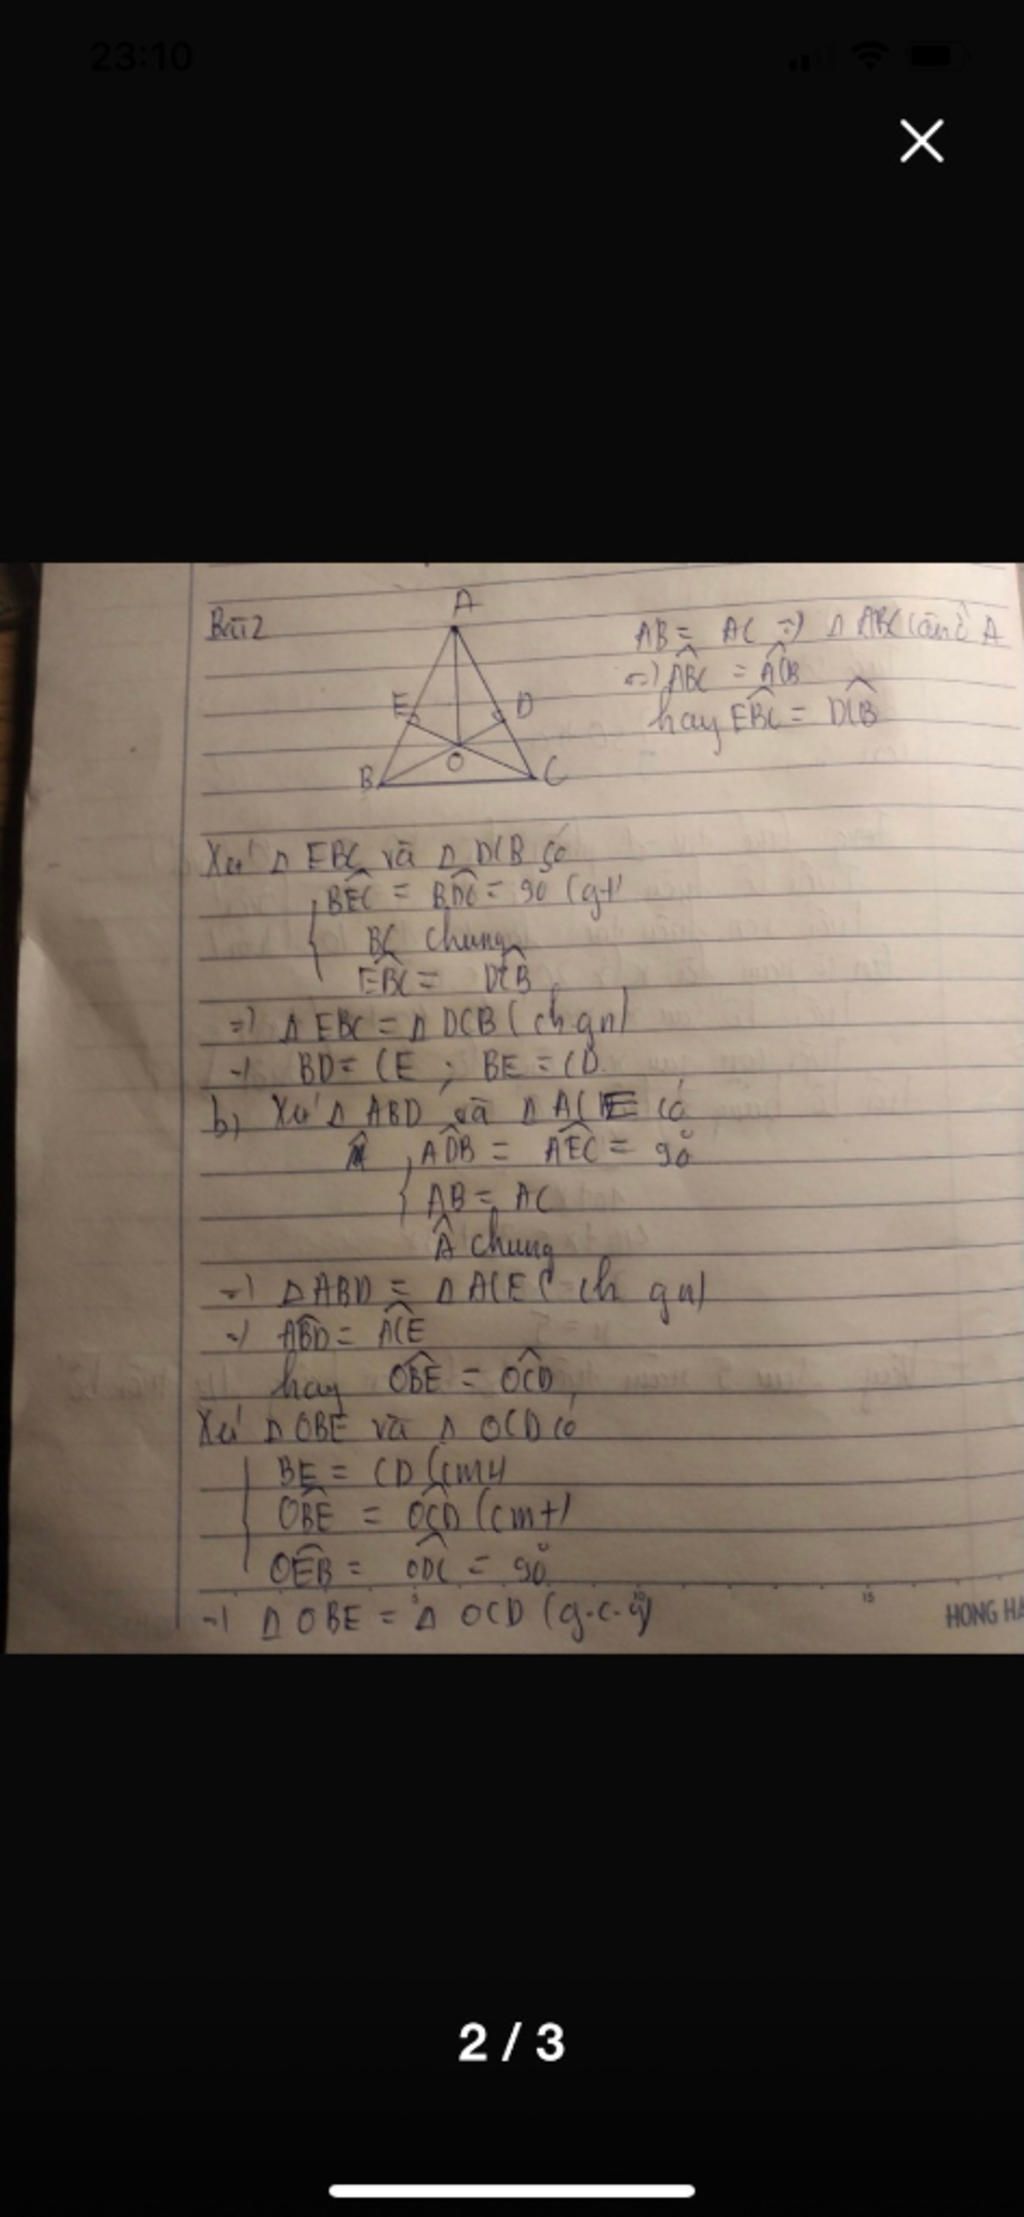 23:10
Bài 2
A
E
D
O
B
C
AB = AC => Δ ABC cân ở A
=> ABC = ACB
hay EBC = DCB
Xét Δ EBC và Δ DCB có
BEC = BDC = 90 (gt)
BC chung
EBC = DCB
=> Δ EBC = Δ DCB (ch gn)
=> BD = CE ; BE = CD
b) Xét Δ ABD và Δ ACE có
ADB = AEC = 90°
AB = AC
Â chung
=> Δ ABD = Δ ACE (ch gn)
=> ABD = ACE
hay OBE = OCD
Xét Δ OBE và Δ OCD có
BE = CD (cmt)
OBE = OCD (cmt)
OEB = ODC = 90°
=> Δ OBE = Δ OCD (g.c.g)
5 10 15
HONG HA
2 / 3